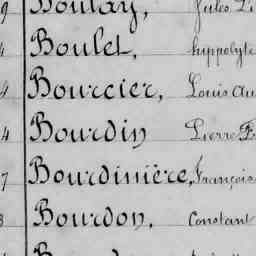 9 Boulay, Jules
4 Boulet, hippolyte
9 Bourcier, Louis Au
4 Bourdin Pierre F
7 Bourdinière, François
3 Bourdon, Constant